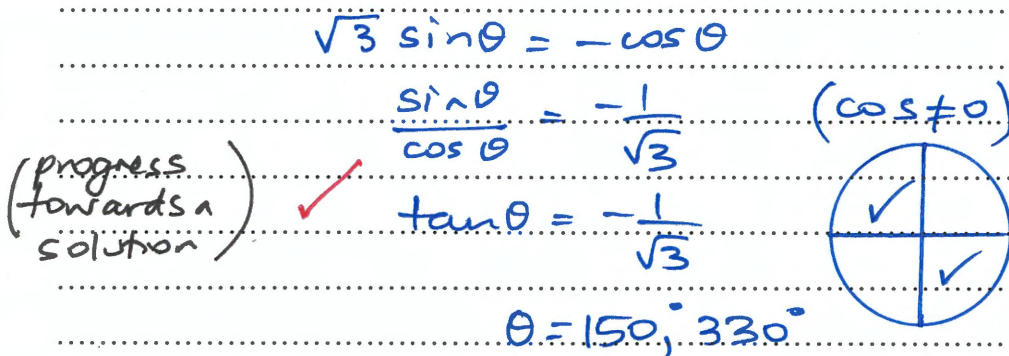 √3 sinθ = -cosθ
sinθ/cosθ = -1/√3 (cos≠0)
(progress towards a solution) ✓ tanθ = -1/√3
θ = 150,° 330°